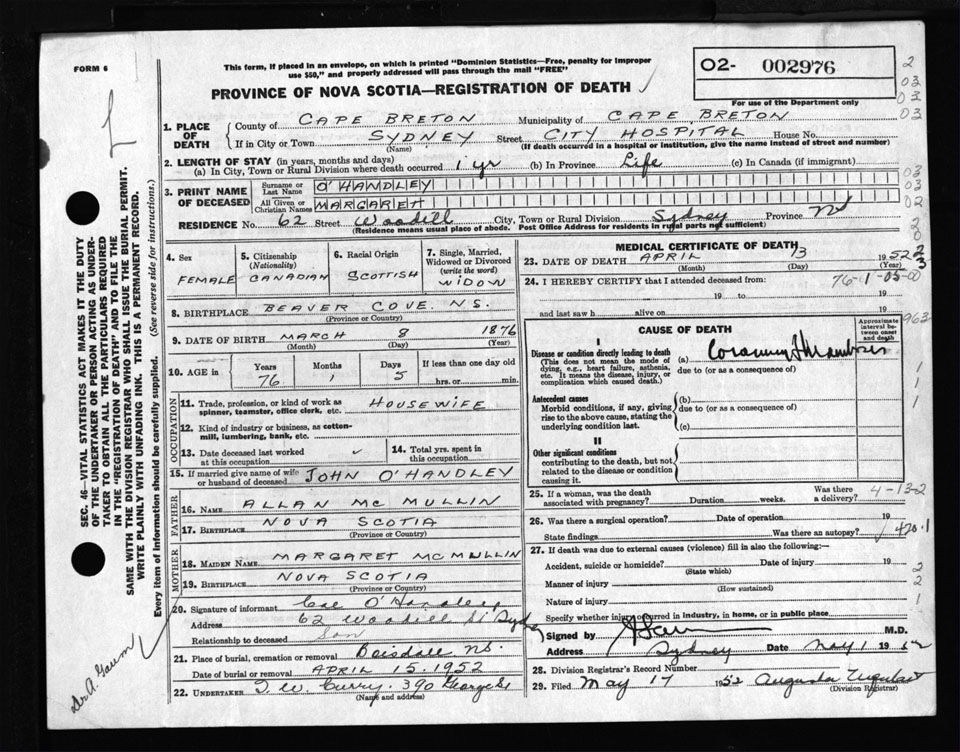 FORM 6
This form, if placed in an envelope, on which is printed "Dominion Statistics—Free, penalty for improper
use $50," and properly addressed will pass through the mail "FREE"
PROVINCE OF NOVA SCOTIA—REGISTRATION OF DEATH
02- 002976
For use of the Department only
1. PLACE OF DEATH
County of CAPE BRETON Municipality of CAPE BRETON
If in City or Town SYDNEY Street CITY HOSPITAL House No.
(Name) (If death occurred in a hospital or institution, give the name instead of street and number)
2. LENGTH OF STAY (in years, months and days)
(a) In City, Town or Rural Division where death occurred 1 yr (b) In Province Life (c) In Canada (if immigrant)
3. PRINT NAME OF DECEASED
Surname or Last Name O'HANDLEY
All Given or Christian Names MARGARET
RESIDENCE No. 62 Street Woodill City, Town or Rural Division Sydney Province NS
(Residence means usual place of abode. Post Office Address for residents in rural parts not sufficient)
4. Sex FEMALE
5. Citizenship (Nationality) CANADIAN
6. Racial Origin SCOTTISH
7. Single, Married, Widowed or Divorced (write the word) WIDOW
8. BIRTHPLACE BEAVER COVE N.S.
(Province or Country)
9. DATE OF BIRTH MARCH 8 1876
(Month) (Day) (Year)
10. AGE in Years 76 Months 1 Days 5 If less than one day old hrs. or min.
OCCUPATION
11. Trade, profession, or kind of work as spinner, teamster, office clerk, etc. HOUSEWIFE
12. Kind of industry or business, as cotton-mill, lumbering, bank, etc.
13. Date deceased last worked at this occupation
14. Total yrs. spent in this occupation
15. If married give name of wife or husband of deceased JOHN O'HANDLEY
FATHER
16. NAME ALLAN MC MULLIN
17. BIRTHPLACE NOVA SCOTIA
(Province or Country)
MOTHER
18. MAIDEN NAME MARGARET MCMULLIN
19. BIRTHPLACE NOVA SCOTIA
(Province or Country)
20. Signature of informant O'Handley
Address 62 Woodill St Sydney
Relationship to deceased Son
21. Place of burial, cremation or removal Boisdale NS.
Date of burial or removal APRIL 15. 1952
22. UNDERTAKER T. W. Curry. 390 George St
(Name and address)
MEDICAL CERTIFICATE OF DEATH
23. DATE OF DEATH APRIL 13 1952
(Month) (Day) (Year)
24. I HEREBY CERTIFY that I attended deceased from: 76-1-05-00
19 to 19
and last saw h alive on 19
963
CAUSE OF DEATH
Approximate interval between onset and death
I
Disease or condition directly leading to death
(This does not mean the mode of dying, e.g., heart failure, asthenia, etc. It means the disease, injury, or complication which caused death.)
(a) Coronary Thrombosis
due to (or as a consequence of)
Antecedent causes
Morbid conditions, if any, giving rise to the above cause, stating the underlying condition last.
(b)
due to (or as a consequence of)
(c)
II
Other significant conditions
contributing to the death, but not related to the disease or condition causing it.
25. If a woman, was the death associated with pregnancy? Duration weeks. Was there a delivery? 4-13-2
26. Was there a surgical operation? Date of operation 19
State findings Was there an autopsy? 420.1
27. If death was due to external causes (violence) fill in also the following:—
Accident, suicide or homicide? Date of injury 19
(State which)
Manner of injury
(How sustained)
Nature of injury
Specify whether injury occurred in industry, in home, or in public place
Signed by M.D.
Address Sydney Date May 1 1952
28. Division Registrar's Record Number
29. Filed May 17 1952 Augusta
(Division Registrar)
SEC. 46—VITAL STATISTICS ACT MAKES IT THE DUTY
OF THE UNDERTAKER OR PERSON ACTING AS UNDER-
TAKER TO OBTAIN ALL THE PARTICULARS REQUIRED
IN THE "REGISTRATION OF DEATH" AND TO FILE THE
SAME WITH THE DIVISION REGISTRAR WHO SHALL ISSUE THE BURIAL PERMIT.
WRITE PLAINLY WITH UNFADING INK. THIS IS A PERMANENT RECORD.
Every item of information should be carefully supplied. (See reverse side for instructions.)
Dr A. Gaum